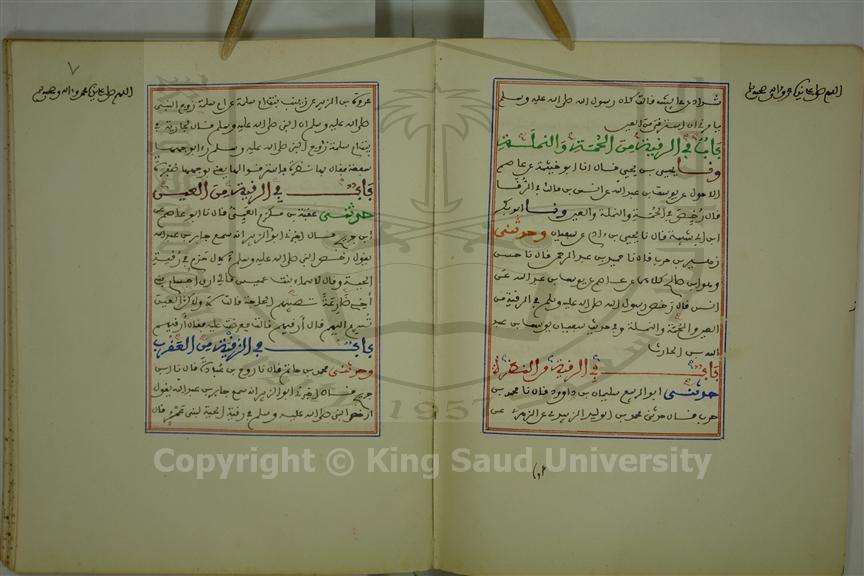 اللهم صل على
شداد عن عايشة قالت كان رسول الله صلى الله عليه وسلم
يامرني ان استرقي من العين
باب في الرقية من الحمة والنملة
ونا يحيى بن يحيى قال انا ابو خيثمة عن عاصم
الاحول عن يوسف بن عبد الله عن انس بن مالك في الرقا
قال رخص في الحمة والنملة والعين ونا ابو بكر
ابن ابي شيبة قال نا يحيى بن ادم عن سفيان وحدثني
زهير بن حرب قال نا حميد بن عبد الرحمن قال نا حسن
وهو ابن صالح كلاهما عن عاصم عن يوسف بن عبد الله عن
انس قال رخص رسول الله صلى الله عليه وسلم في الرقية من
العين والحمة والنملة وفي حديث سفيان يوسف بن عبد
الله بن الحارث
باب في الرقية من النظرة
حدثني ابو الربيع سليمان بن داوود قال نا محمد بن
حرب قال حدثني محمد بن الوليد الزبيدي عن الزهري عن
٧
اللهم صل على
عروة بن الزبير عن زينب بنت ام سلمة عن ام سلمة زوج النبي
صلى الله عليه وسلم ان النبي صلى الله عليه وسلم قال لجارية في
بيت ام سلمة زوج النبي صلى الله عليه وسلم راى بوجهها
سفعة فقال بها نظرة فاسترقوا لها يعني بوجهها صفرة
باب في الرقية من العين
حدثني عقبة بن مكرم العمي قال نا ابو عاصم عن
ابن جريج قال اخبرني ابو الزبير انه سمع جابر بن عبد الله
يقول رخص النبي صلى الله عليه وسلم لال حزم في رقية
الحية وقال لاسماء بنت عميس مالي ارى اجسام بني
اخي ضارعة تصيبهم الحاجة قالت لا ولاكن العين
تسرع اليهم قال ارقيهم قالت فعرضت عليه فقال ارقيهم
باب في الرقية من العقرب
وحدثني محمد بن حاتم قال نا روح بن عبادة قال نا ابن
جريج قال اخبرني ابو الزبير انه سمع جابر بن عبد الله يقول
ارخص النبي صلى الله عليه وسلم في رقية الحية لبني عمرو قال
1957
Copyright © King Saud University